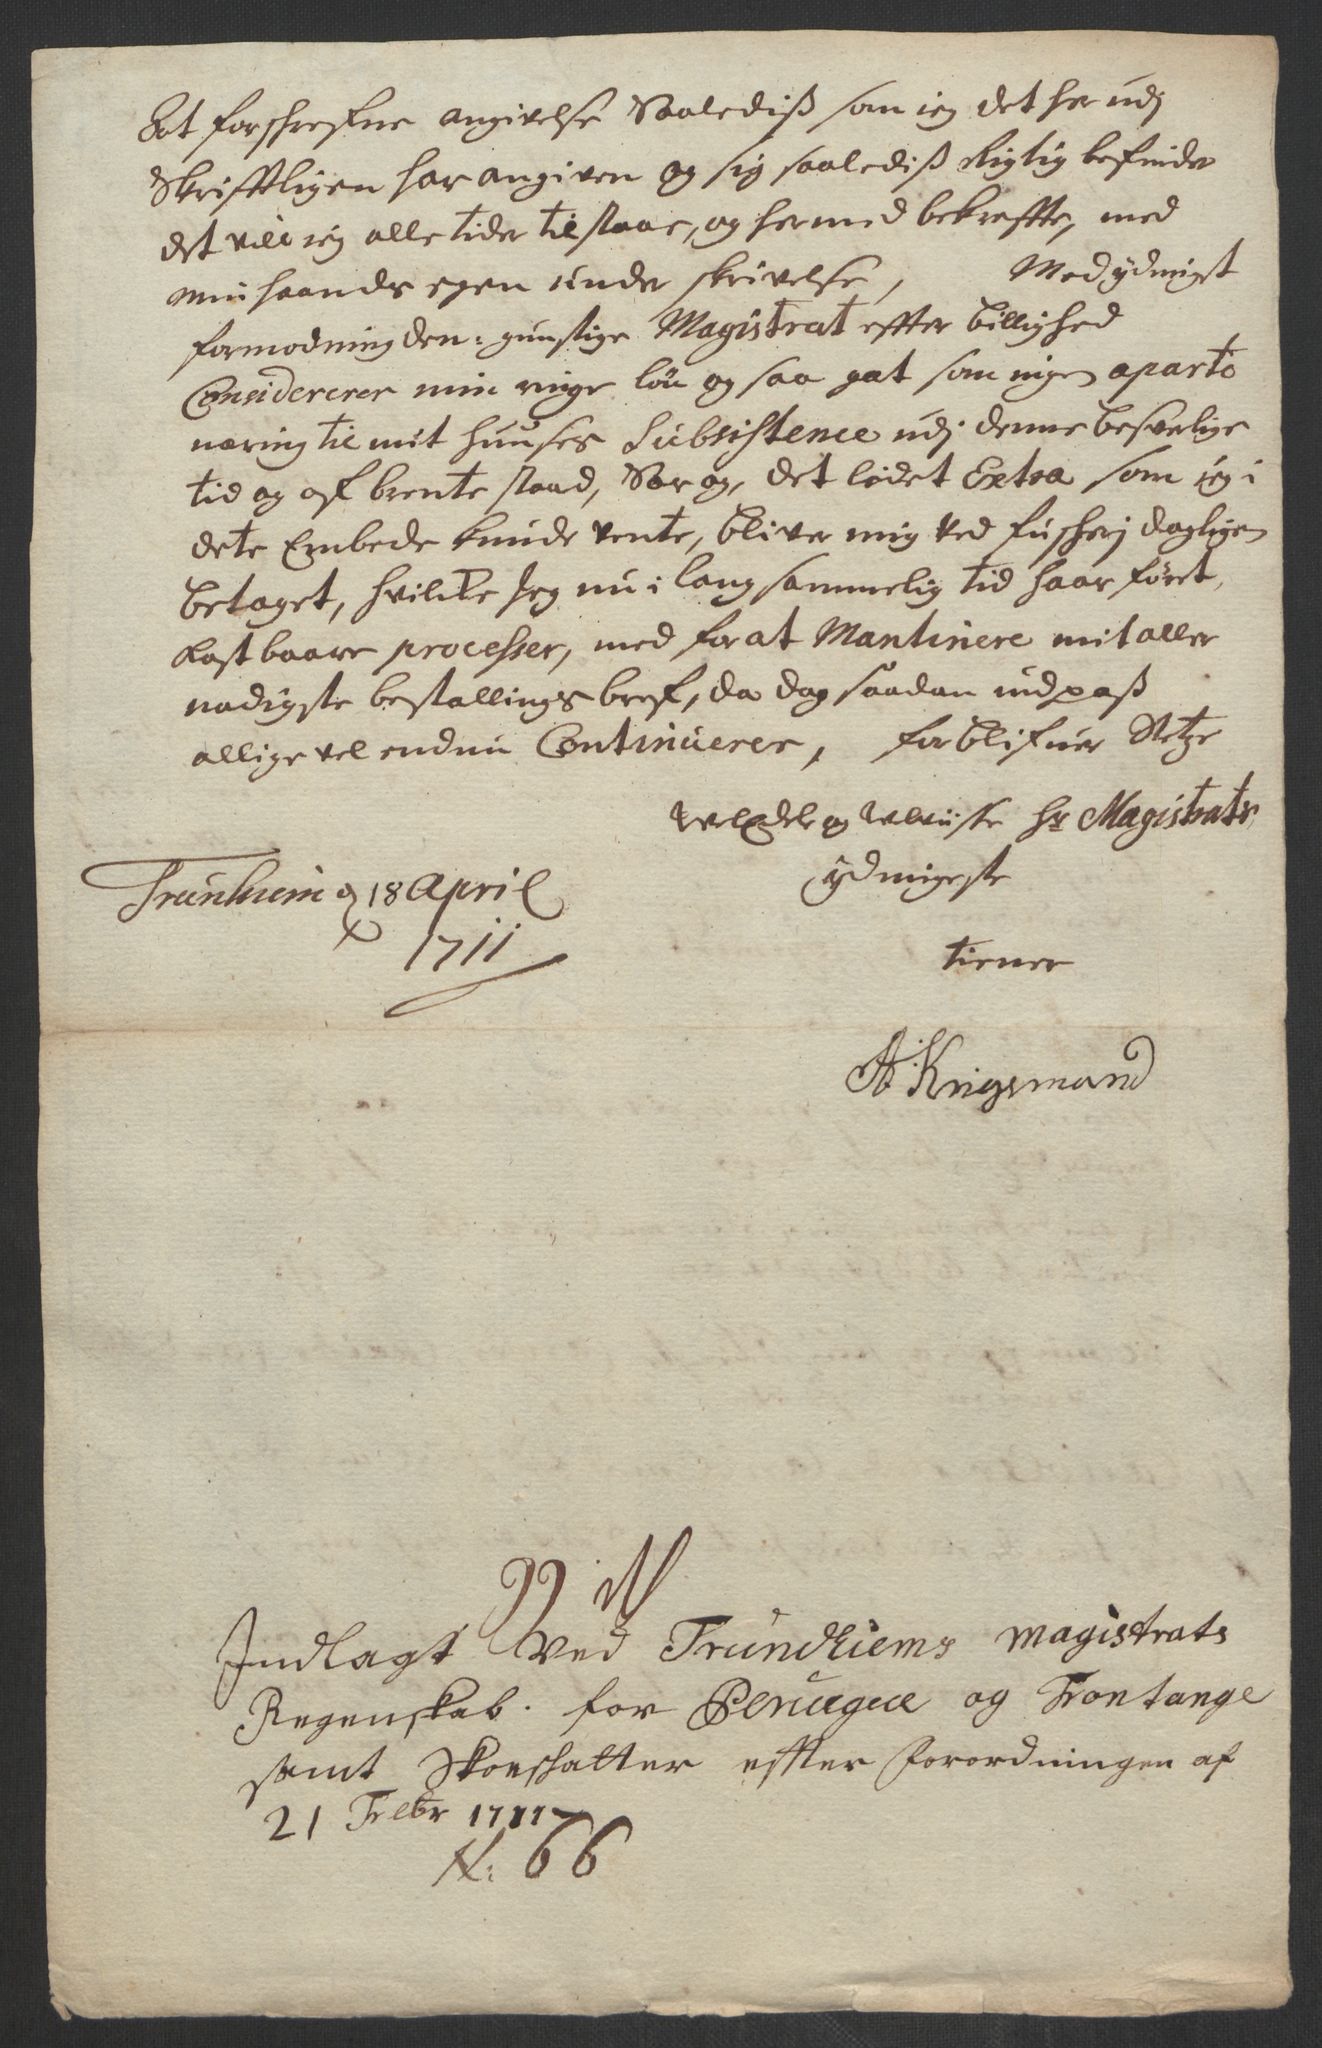 At forschrefne angivelse Saalediß som ieg det her udj
Skrifftligen har angiven og sig saalediß Rigtig befinder
det vill ieg alle tider tilstaae, og hermed bekreffte, med
min haands egen under skrivelse, Med ydmigst
formodning den: gunstige Magistrat effter billighed
Considererer min ringe lön og saa gat som ingen aparte
næring til mit huuses Subsistence udj denne besverlige
tid og af brente staad, Sær og, det lidet Extra som ieg i
dete Embede kunde vente, bliver mig ved fuscherj dagligen
betaget, hvilcke Jeg nu i langsammelig tid haar föret
Kostbaare processer, med for at Mantinere mit aller
nadigste bestallings bref, da dog saadan indpaß
allige vel endnu Continuerer, forblifuer Stetze
WelEdele og Wlviise Hr Magistrats
ydmigeste
Trunhiem d 18 April
1711
tiener
A Krigsmand
Indlagt ved Trundhiems magistrats
Regenskab for Peruque og Frontange
samt Skoeschatter effter forordningen af
21 Febr 1711
N: 66